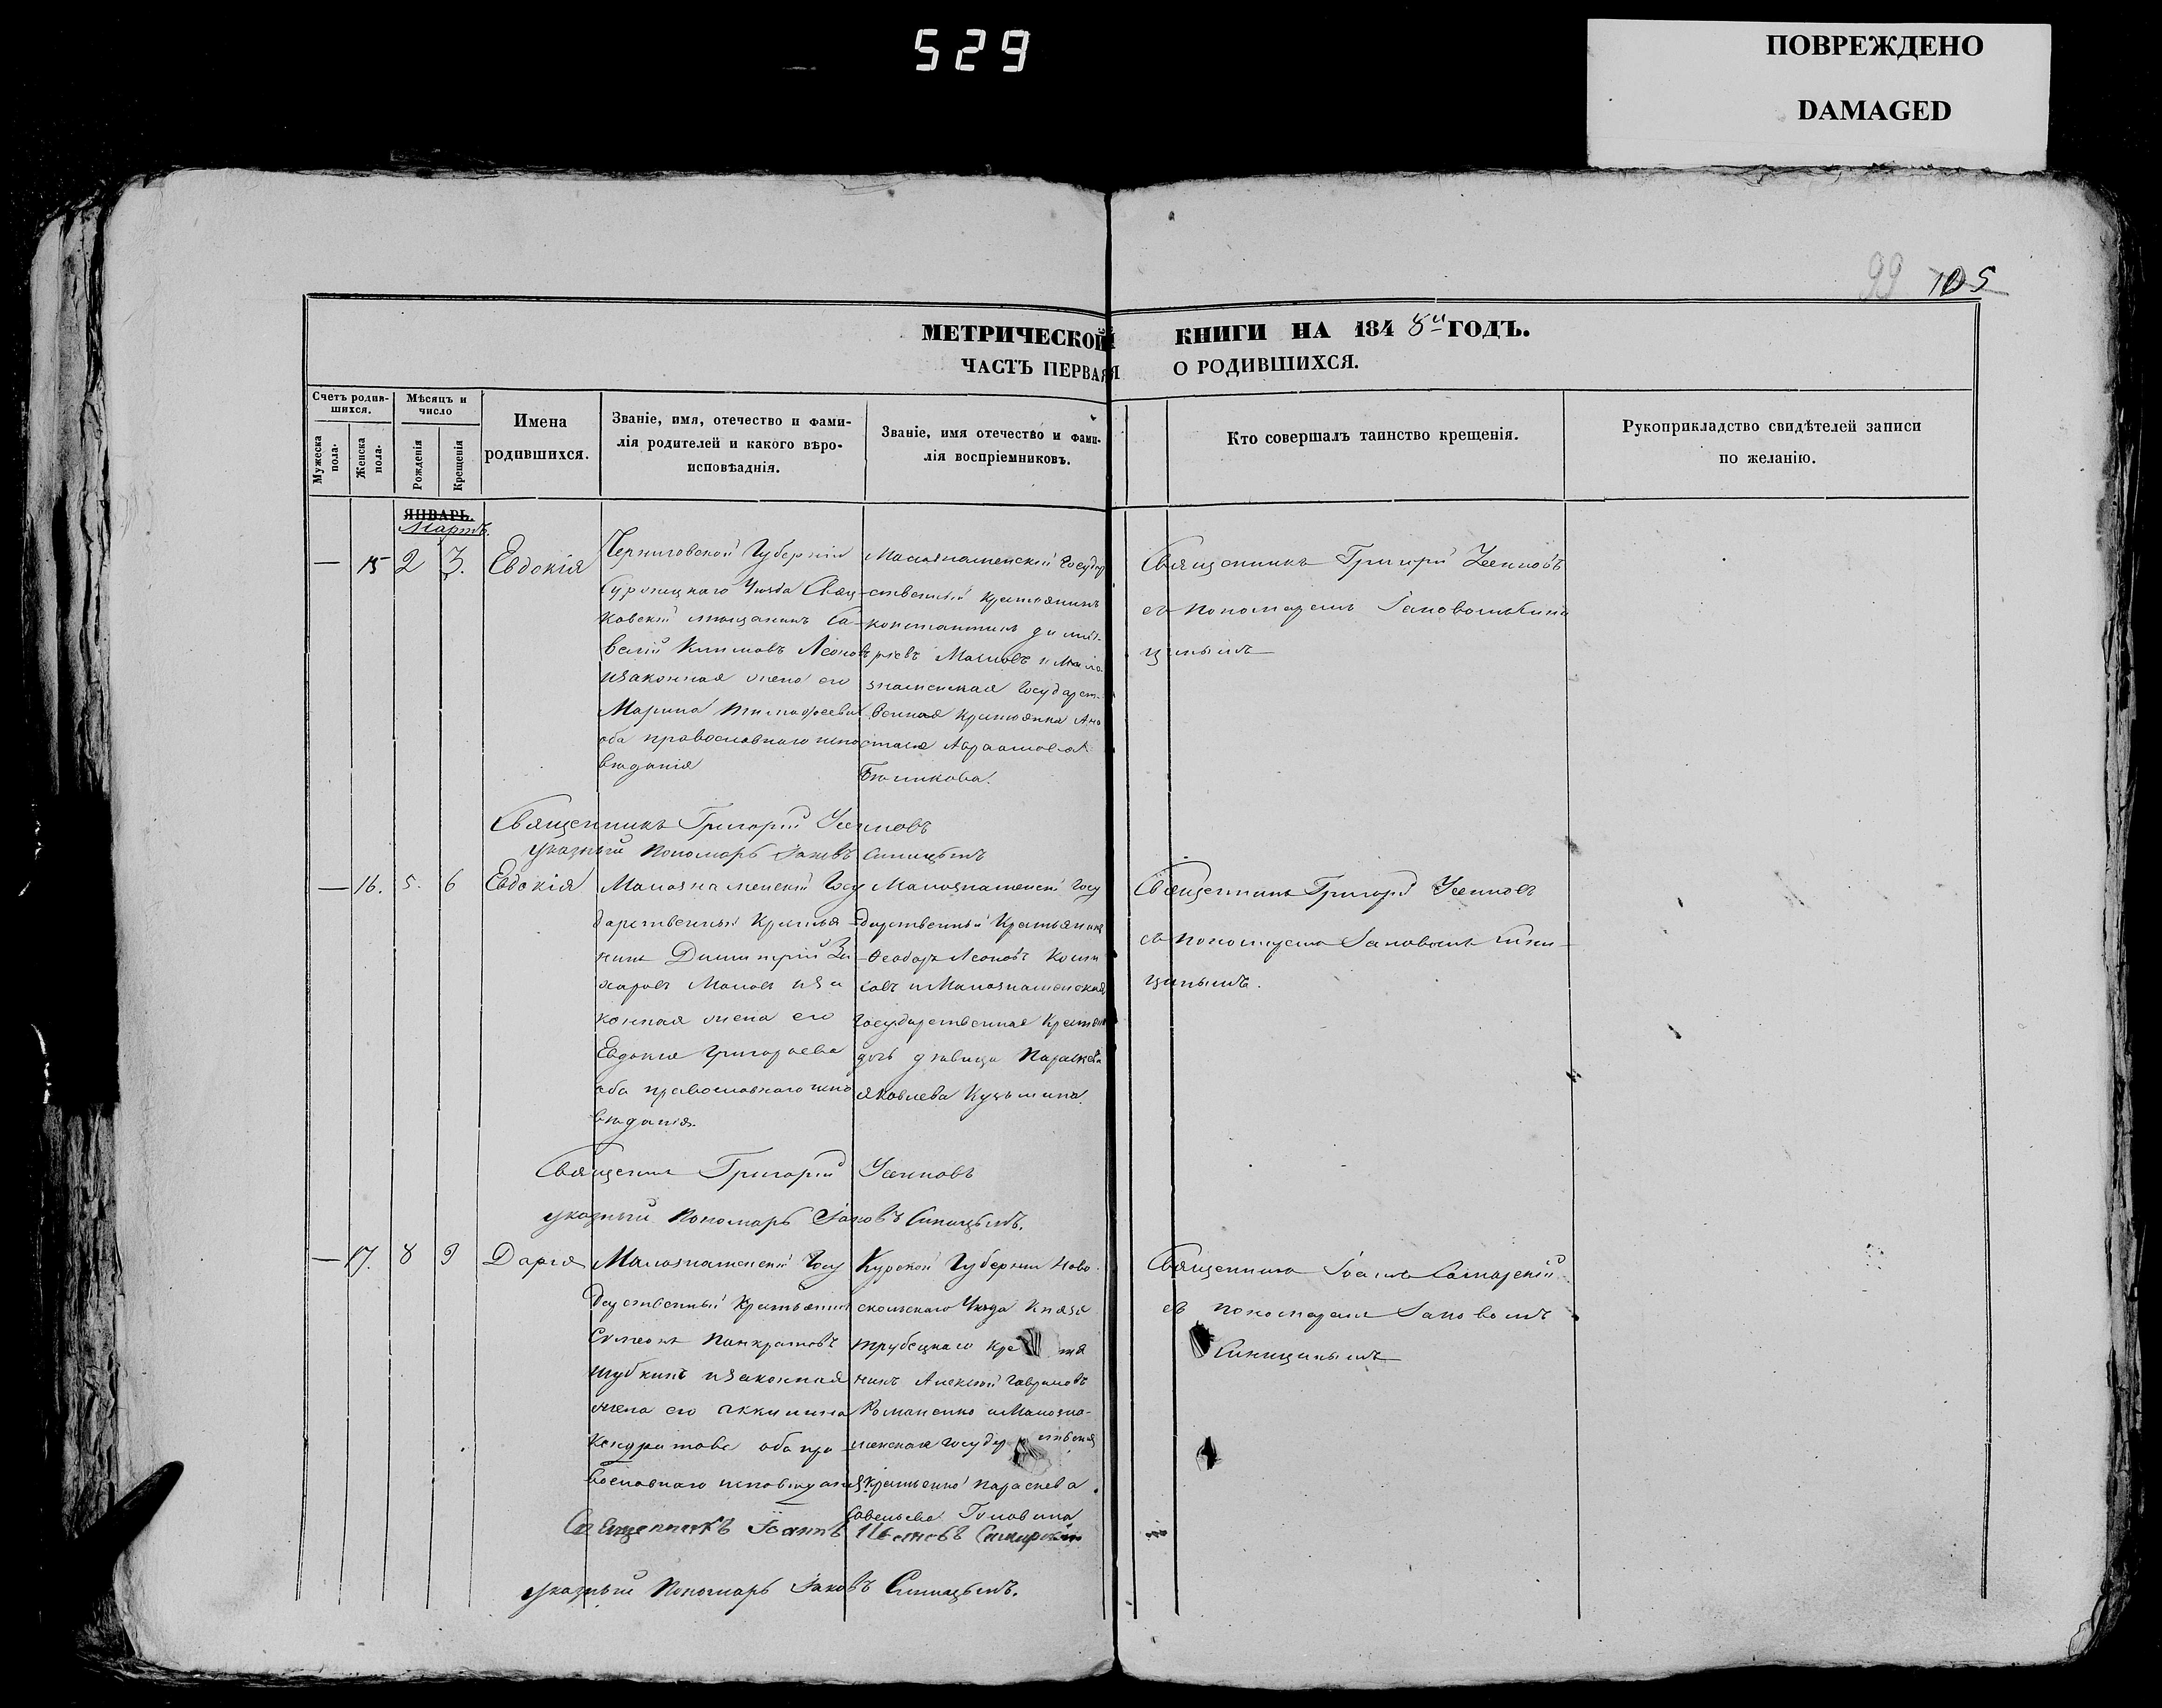 529
ПОВРЕЖДЕНО
DAMAGED
99 105
МЕТРИЧЕСКОЙ КНИГИ НА 1848й ГОДЪ.
ЧАСТЬ ПЕРВАЯ О РОДИВШИХСЯ.
Счетъ родив-
шихся.
Мужеска
пола.
Женска
пола.
Мѣсяцъ и
число
Рожденія
Крещенія
Имена
родившихся.
Званіе, имя, отечество и фами-
лія родителей и какого вѣро-
исповѣаднія.
Званіе, имя отечество и фами-
лія воспріемниковъ.
Кто совершалъ таинство крещенія.
Рукоприкладство свидѣтелей записи
по желанію.
ЯНВАРЬ.
Мартъ.
— 15 2 3. Евдокія
Черниговской Губерніи
Уѣзда
ковскій мещанинъ Са-
велій Климовъ Леоновъ
изаконная жена его
Марина Тимофеева
оба православнаго испо
вѣданія
Малознаменскій Государ
ственный крестьянинъ
константинъ димит-
ріевъ Маловъ и Мало
знаменская Государст-
венная крестьянка Ана
стасія Авраамова
Священникъ Григорій
съ пономаремъ Іаковомъ Сини
цинымъ
Священникъ Григорій
указный Пономарь Іаковъ Синицынъ
— 16. 5. 6 Евдокія
Малознаменскій Госу
дарственный Крестья
нинъ Димитрій За
харовъ Маловъ иза
конная жена его
Евдокія Григорьева
оба православнаго испо
вѣданія.
Малознаменскій Госу
дарственный Крестьянинъ
Ѳеодоръ Леоновъ
и Малознаменская
Государственная Крестьян
дочь дѣвица Параскева
Яковлева Кузьмина.
Священникъ Григорій
съ пономаремъ Іаковомъ Сини-
цинымъ.
Священникъ Григорій
указный Пономарь Іаковъ Синицынъ.
— 17. 8 9 Дарія
Малознаменскій Госу
дарственный Крестьянинъ
Симеонъ Панкратовъ
Шубкинъ изаконная
жена его Аккилина
Кондратова оба пра
вославнаго исповѣданія
Курской Губерніи Ново
оскольскаго Уѣзда Князя
Трубецкаго
нинъ Алексѣй Гавриловъ
Романенко и Малозна-
менская
крестьянка Параскева
Савельева Головина
Священникъ Іоаннъ
съ пономаремъ Іаковомъ
Синицинымъ
Священникъ Іоаннъ Ивановъ
указный Пономарь Іаковъ Синицынъ.